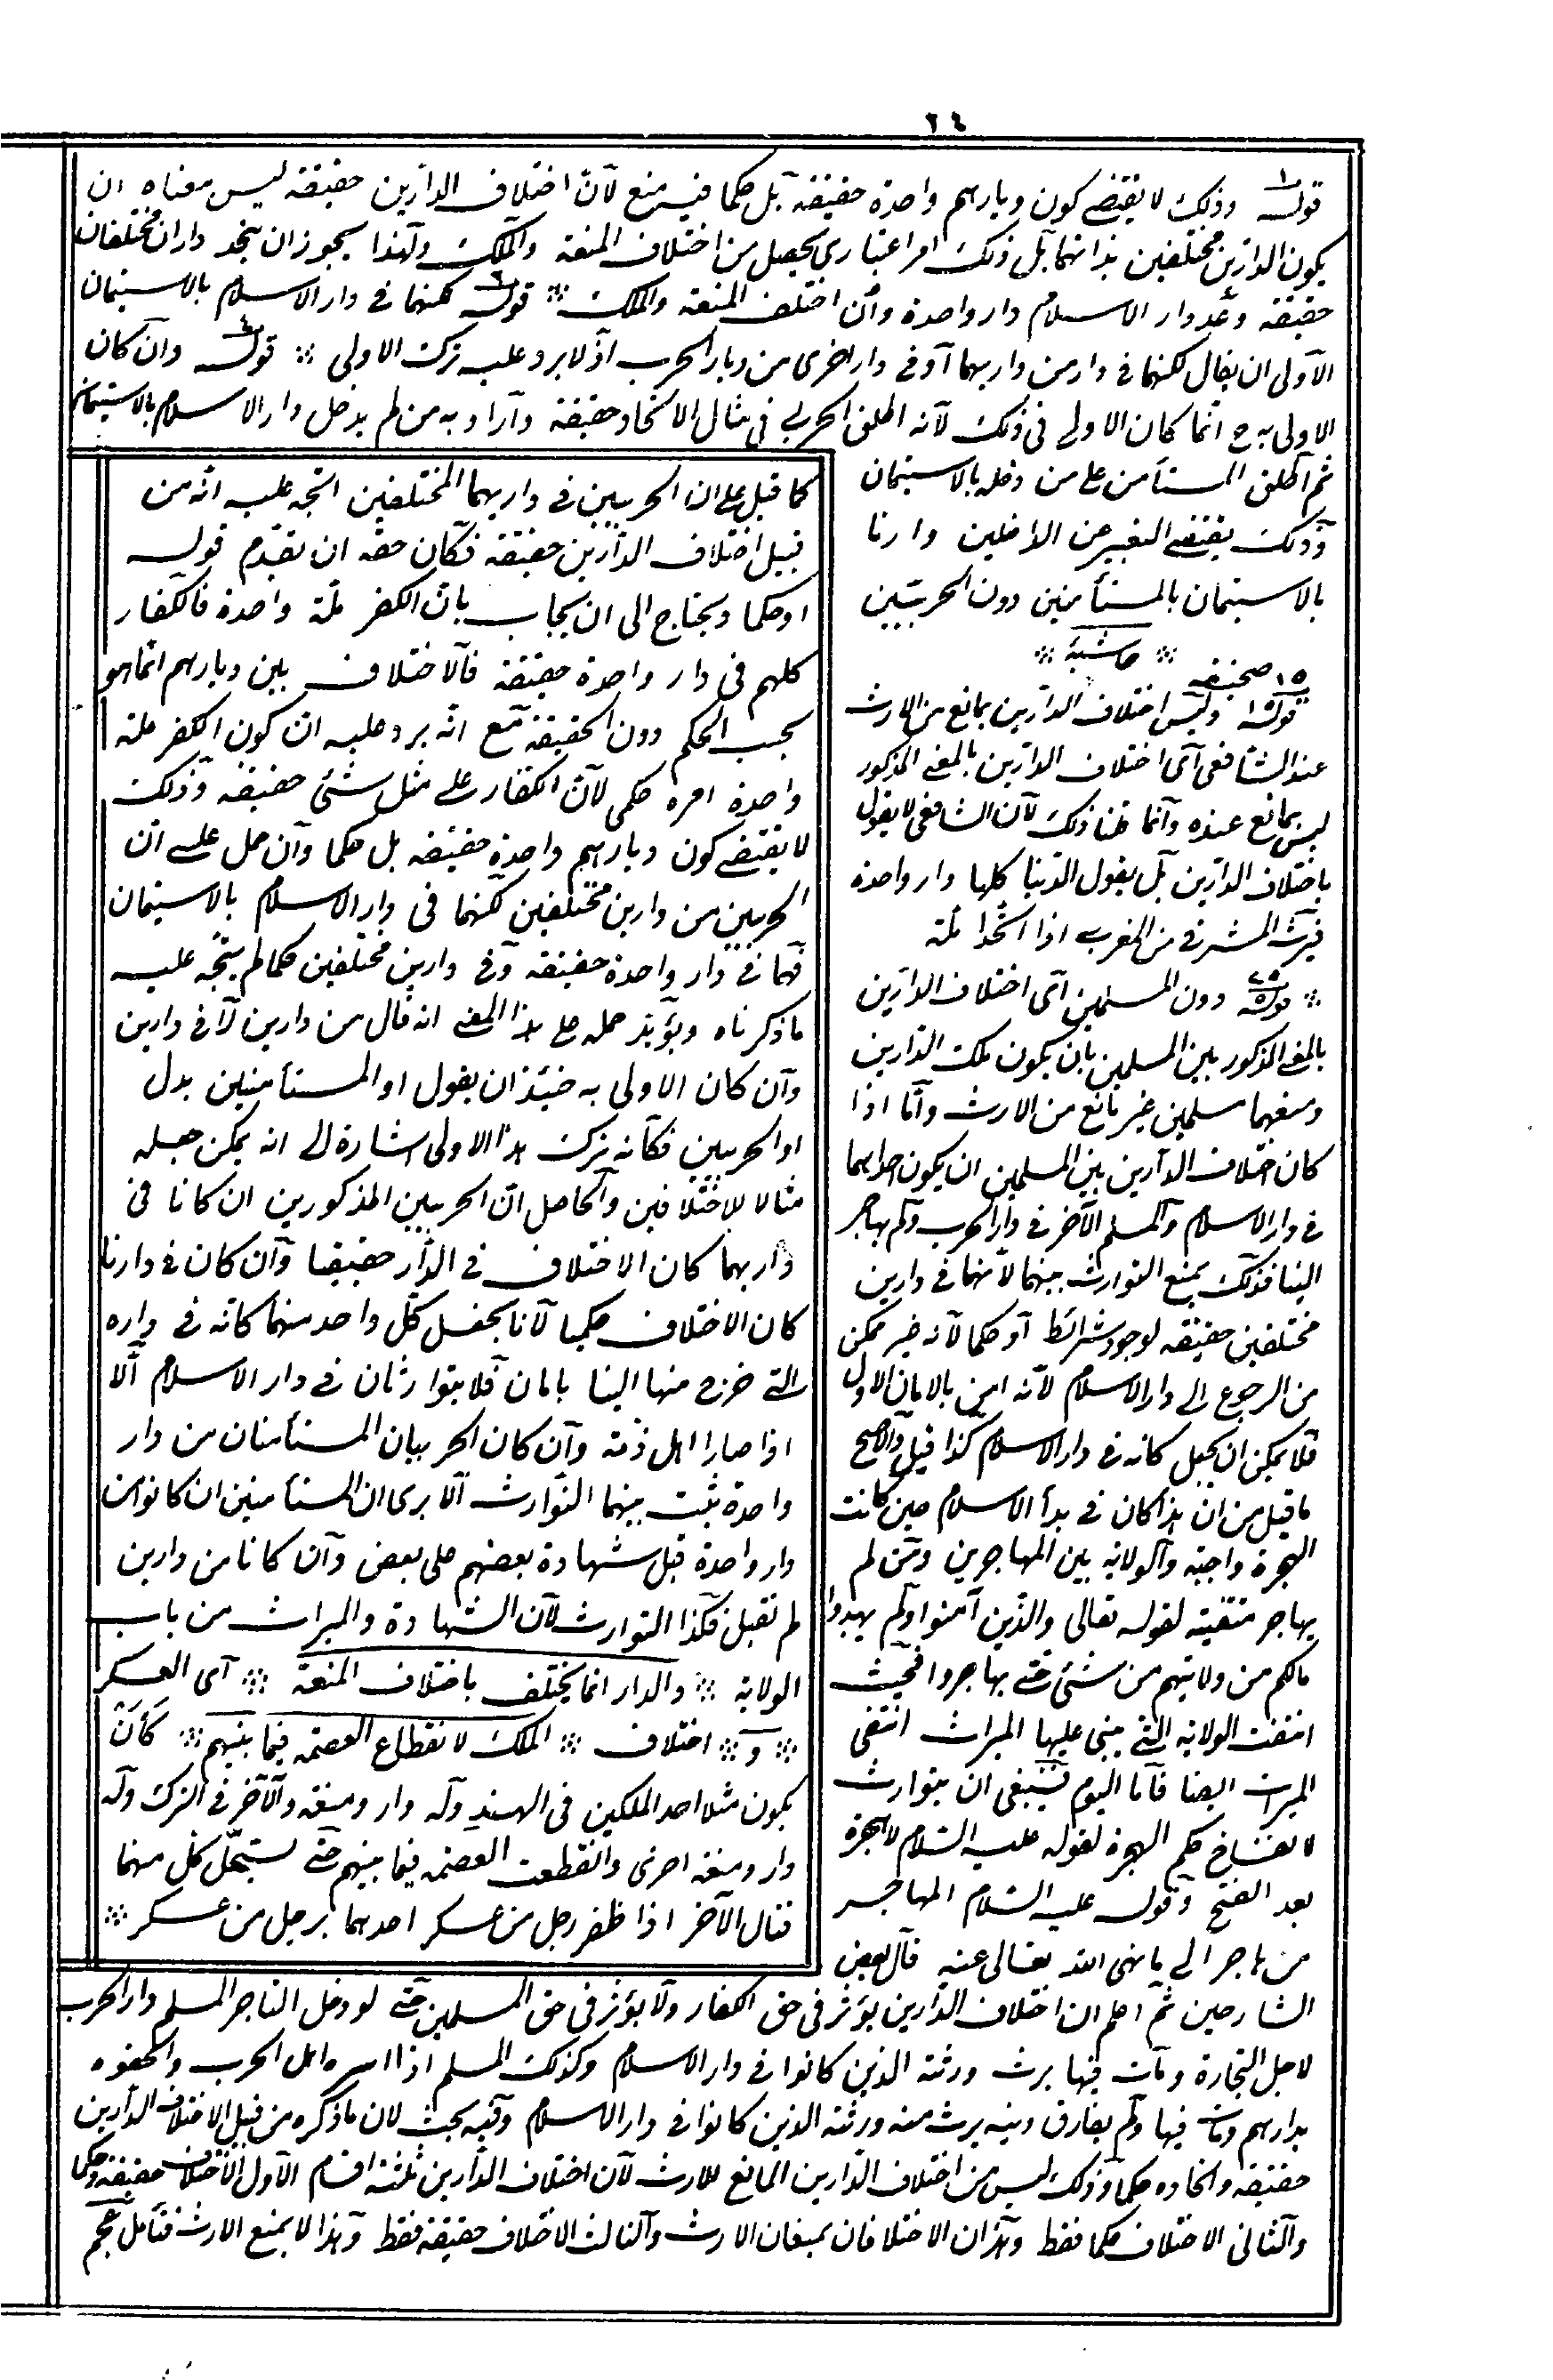 ٢٤
قوله وذلك لا يقتضى كون ديارهم واحدة حقيقة بل حكما فيه منع لان اختلاف الدارين حقيقة ليس معناه ان
يكون الدارين مختلفين بذاتهما بل ذلك امر اعتبارى يحصل من اختلاف المنعة والملك ولهذا يجوز ان يتحد داران مختلفان
حقيقة وعد دار الاسلام دار واحدة وان اختلف المنعة والملك ∴ قوله لكنهما فى دار الاسلام بالاستيمان
الاولى ان يقال لكنهما فى دار من داريهما او فى دار اخرى من ديار الحرب اذ لا يرد عليه ترك الاولى ∴ قوله وان كان
الاولى به ح انما كان الاولى فى ذلك لانه اطلق الحربى فى مثال الاتحاد حقيقة واراد به من لم يدخل دار الاسلام بالاستيمان
ثم اطلق المستأمن على من دخله بالاستيمان
وذلك يقتضى التعبير عن الداخلين دارنا
بالاستيمان بالمستأمنين دون الحربيين
∴ حاشية ∴
١٥ صحيفه
قوله وليس اختلاف الدارين بمانع من الارث
عند الشافعى اى اختلاف الدارين بالمعنى المذكور
ليس بمانع عنده وانما قلنا ذلك لان الشافعى لا يقول
باختلاف الدارين بل يقول الدنيا كلها دار واحدة
فيرث المشرقى من المغربى اذا اتحدا ملة
∴ قوله دون المسلمين اى اختلاف الدارين
بالمعنى المذكور بين المسلمين بان يكون ملك الدارين
ومنعهما مسلمين غير مانع من الارث واما اذا
كان اختلاف الدارين بين المسلمين ان يكون احدهما
فى دار الاسلام والمسلم الآخر فى دار الحرب ولم يهاجر
الينا فذلك يمنع التوارث بينهما لانهما فى دارين
مختلفين حقيقة لوجود شرائط او حكما لانه غير ممكن
من الرجوع الى دار الاسلام لانه امن بالامان الاول
فلا يمكن ان يجعل كانه فى دار الاسلام كذا قيل والاصح
ما قيل من ان هذا كان فى بدأ الاسلام حين كانت
الهجرة واجبة والولاية بين المهاجرين ومن لم
يهاجر منتفية لقوله تعالى والذين آمنوا ولم يهاجروا
مالكم من ولايتهم من شئ حتى يهاجروا فحيث
انتفت الولاية التى يبنى عليها الميراث انتفى
الميراث ايضا فاما اليوم فينبغى ان يتوارث
لانفساخ حكم الهجرة لقوله عليه السلام لا هجرة
بعد الفتح وقوله عليه السلام المهاجر
من هاجر الى ما نهى الله تعالى عنه قال بعض
الشارحين ثم اعلم ان اختلاف الدارين يؤثر فى حق الكفار ولا يؤثر فى حق المسلمين حتى لو دخل التاجر المسلم دار الحرب
لاجل التجارة ومات فيها يرث ورثته الذين كانوا فى دار الاسلام وكذلك المسلم اذا اسره اهل الحرب والحقوه
بدارهم ومات فيها ولم يفارق دينه يرث منه ورثته الذين كانوا فى دار الاسلام وفيه بحث لان ما ذكره من قبيل الاختلاف الدارين
حقيقة واتحاده حكما وذلك ليس من اختلاف الدارين المانع للارث لان اختلاف الدارين ثلثة اقسام الاول الاختلاف حقيقة وحكما
والثانى الاختلاف حكما فقط وهذان الاختلافان يمنعان الارث والثالث الاختلاف حقيقة فقط وهذا لا يمنع الارث فتأمل عجم
كما قيل على ان الحربيين فى داريهما المختلفين اتجه عليه انه من
قبيل اختلاف الدارين حقيقة فكان حقه ان يقدم قوله
او حكما ويحتاج الى ان يجاب بان الكفر ملة واحدة فالكفار
كلهم فى دار واحدة حقيقة فالاختلاف بين ديارهم انما هو
بحسب الحكم دون الحقيقة مع انه يرد عليه ان كون الكفر ملة
واحدة امره حكمى لان الكفار على مثل شئ حقيقة وذلك
لا يقتضى كون ديارهم واحدة حقيقة بل حكما وان حمل على ان
الحربيين من دارين مختلفين لكنهما فى دار الاسلام بالاستيمان
فهما فى دار واحدة حقيقة وفى دارين مختلفين حكما لم يتجه عليه
ما ذكرناه ويؤيد حمله على هذا المعنى انه قال من دارين لا فى دارين
وان كان الاولى به حينئذ ان يقول او المستأمنين بدل
او الحربيين فكانه ترك هذا الاولى اشارة الى انه يمكن جعله
مثالا للاختلافين والحاصل ان الحربيين المذكورين ان كانا فى
داريهما كان الاختلاف فى الدار حقيقيا وان كان فى دارنا
كان الاختلاف حكميا لانا نجعل كل واحد منهما كانه فى داره
التى خرج منها الينا بامان فلا يتوارثان فى دار الاسلام الا
اذا صارا اهل ذمة وان كان الحربيان المستأمنان من دار
واحدة يثبت بينهما التوارث الا يرى ان المستأمنين ان كانوا من
دار واحدة قبل شهادة بعضهم على بعض وان كانا من دارين
لم تقبل فكذا التوارث لان الشهادة والميراث من باب
الولاية ∴ والدار انما يختلف باختلاف المنعة ∴ اى العسكر
∴ و ∴ اختلاف ∴ الملك لانقطاع العصمة فيما بينهم ∴ كأن
يكون مثلا احد الملكين فى الهند وله دار ومنعة والآخر فى الترك وله
دار ومنعة اخرى وانقطعت العصمة فيما بينهم حتى يستحل كل منهما
قتال الآخر اذا ظفر رجل من عسكر احدهما برجل من عسكر ∴